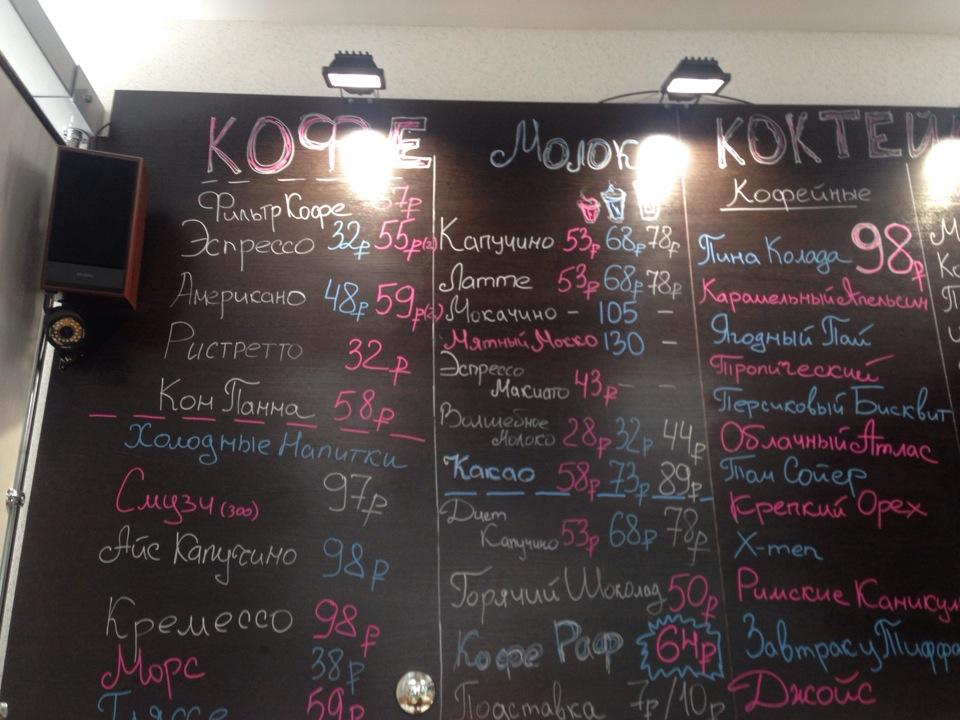 КОФЕ
Фильтр Кофе 37₽
Эспрессо 32₽ 55₽(2)
Американо 48₽ 59₽(2)
Ристретто 32₽
Кон Панна 58₽
Холодные Напитки
Смузи (300) 97₽
Айс Капучино 98₽
Кремессо 98₽
Морс 38₽
Глясse 59₽
Капучино 53₽ 68₽ 78₽
Латте 53₽ 68₽ 78₽
Мокачино - 105 -
Мятный Мокко 130 -
Эспрессо
Макиато 43₽ - -
Волшебное
Молоко 28₽ 32₽ 44₽
Какао 58₽ 73₽ 89₽
Диет
Капучино 53₽ 68₽ 78₽
Горячий Шоколад 50₽
Кофе Раф 64₽
Подставка 7₽/10₽
КОКТЕЙ
Кофейные
Пина Колада 98₽
Карамельный Апельсин
Ягодный Пай
Тропический
Персиковый Бисквит
Облачный Атлас
Том Сойер
Крепкий Орех
X-men
Римские Каникул
Завтрак у Тиффа
Джойс